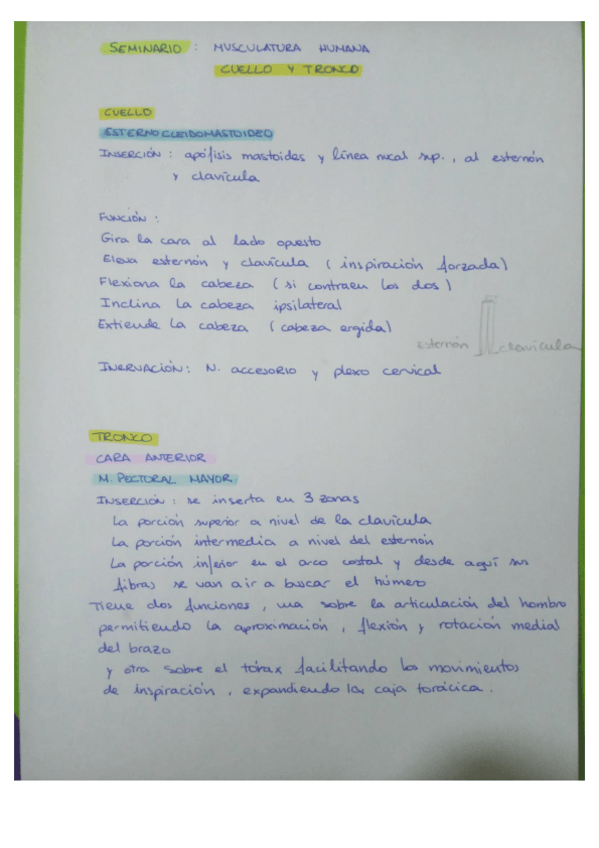 SEMINARIO : MUSCULATURA HUMANA
CUELLO Y TRONCO
CUELLO
ESTERNOCLEIDOMASTOIDEO
INSERCIÓN : apófisis mastoides y línea nucal sup. , al esternón
y clavícula
FUNCIÓN :
Gira la cara al lado opuesto
Eleva esternón y clavícula ( inspiración forzada)
Flexiona la cabeza ( si contraen los dos )
Inclina la cabeza ipsilateral
Extiende la cabeza ( cabeza ergida)
esternón clavícula
INERVACIÓN : N. accesorio y plexo cervical
TRONCO
CARA ANTERIOR
M. PECTORAL MAYOR
INSERCIÓN : se inserta en 3 zonas
La porción superior a nivel de la clavícula
La porción intermedia a nivel del esternón
La porción inferior en el arco costal y desde aquí sus
fibras se van a ir a buscar el húmero
Tiene dos funciones , una sobre la articulación del hombro
permitiendo la aproximación , flexión y rotación medial
del brazo
y otra sobre el tórax facilitando los movimientos
de inspiración , expandiendo la caja torácica .